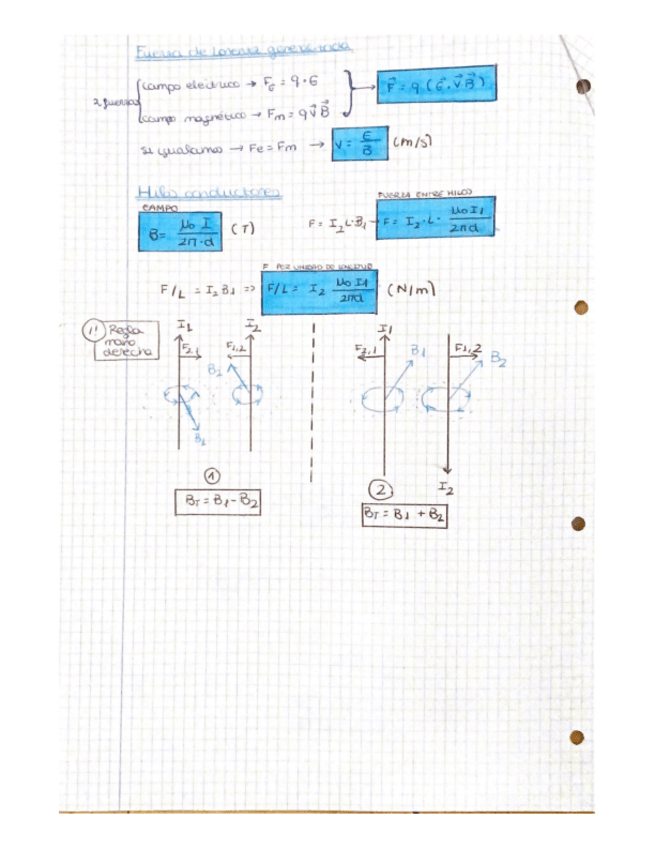 Fuerza de Lorentz generalizada
2 fuerzas
campo eléctrico → Fe = q · E
campo magnético → Fm = q v⃗ B⃗
F⃗ = q (E⃗ · v⃗ B⃗)
si igualamos → Fe = Fm → V = E/B (m/s)
Hilos conductores
CAMPO
B = μ0 I / 2π · d (T)
FUERZA ENTRE HILOS
F = I2 L · B1 → F = I2 · L · μ0 I1 / 2πd
F POR UNIDAD DE LONGITUD
F/L = I2 B1 => F/L = I2 μ0 I1 / 2πd (N/m)
1! Regla mano derecha
I1 I2 I1
F2,1 F1,2 F2,1 B1 F1,2 B2
B2
B1
I2
1 2
BT = B1 - B2 BT = B1 + B2